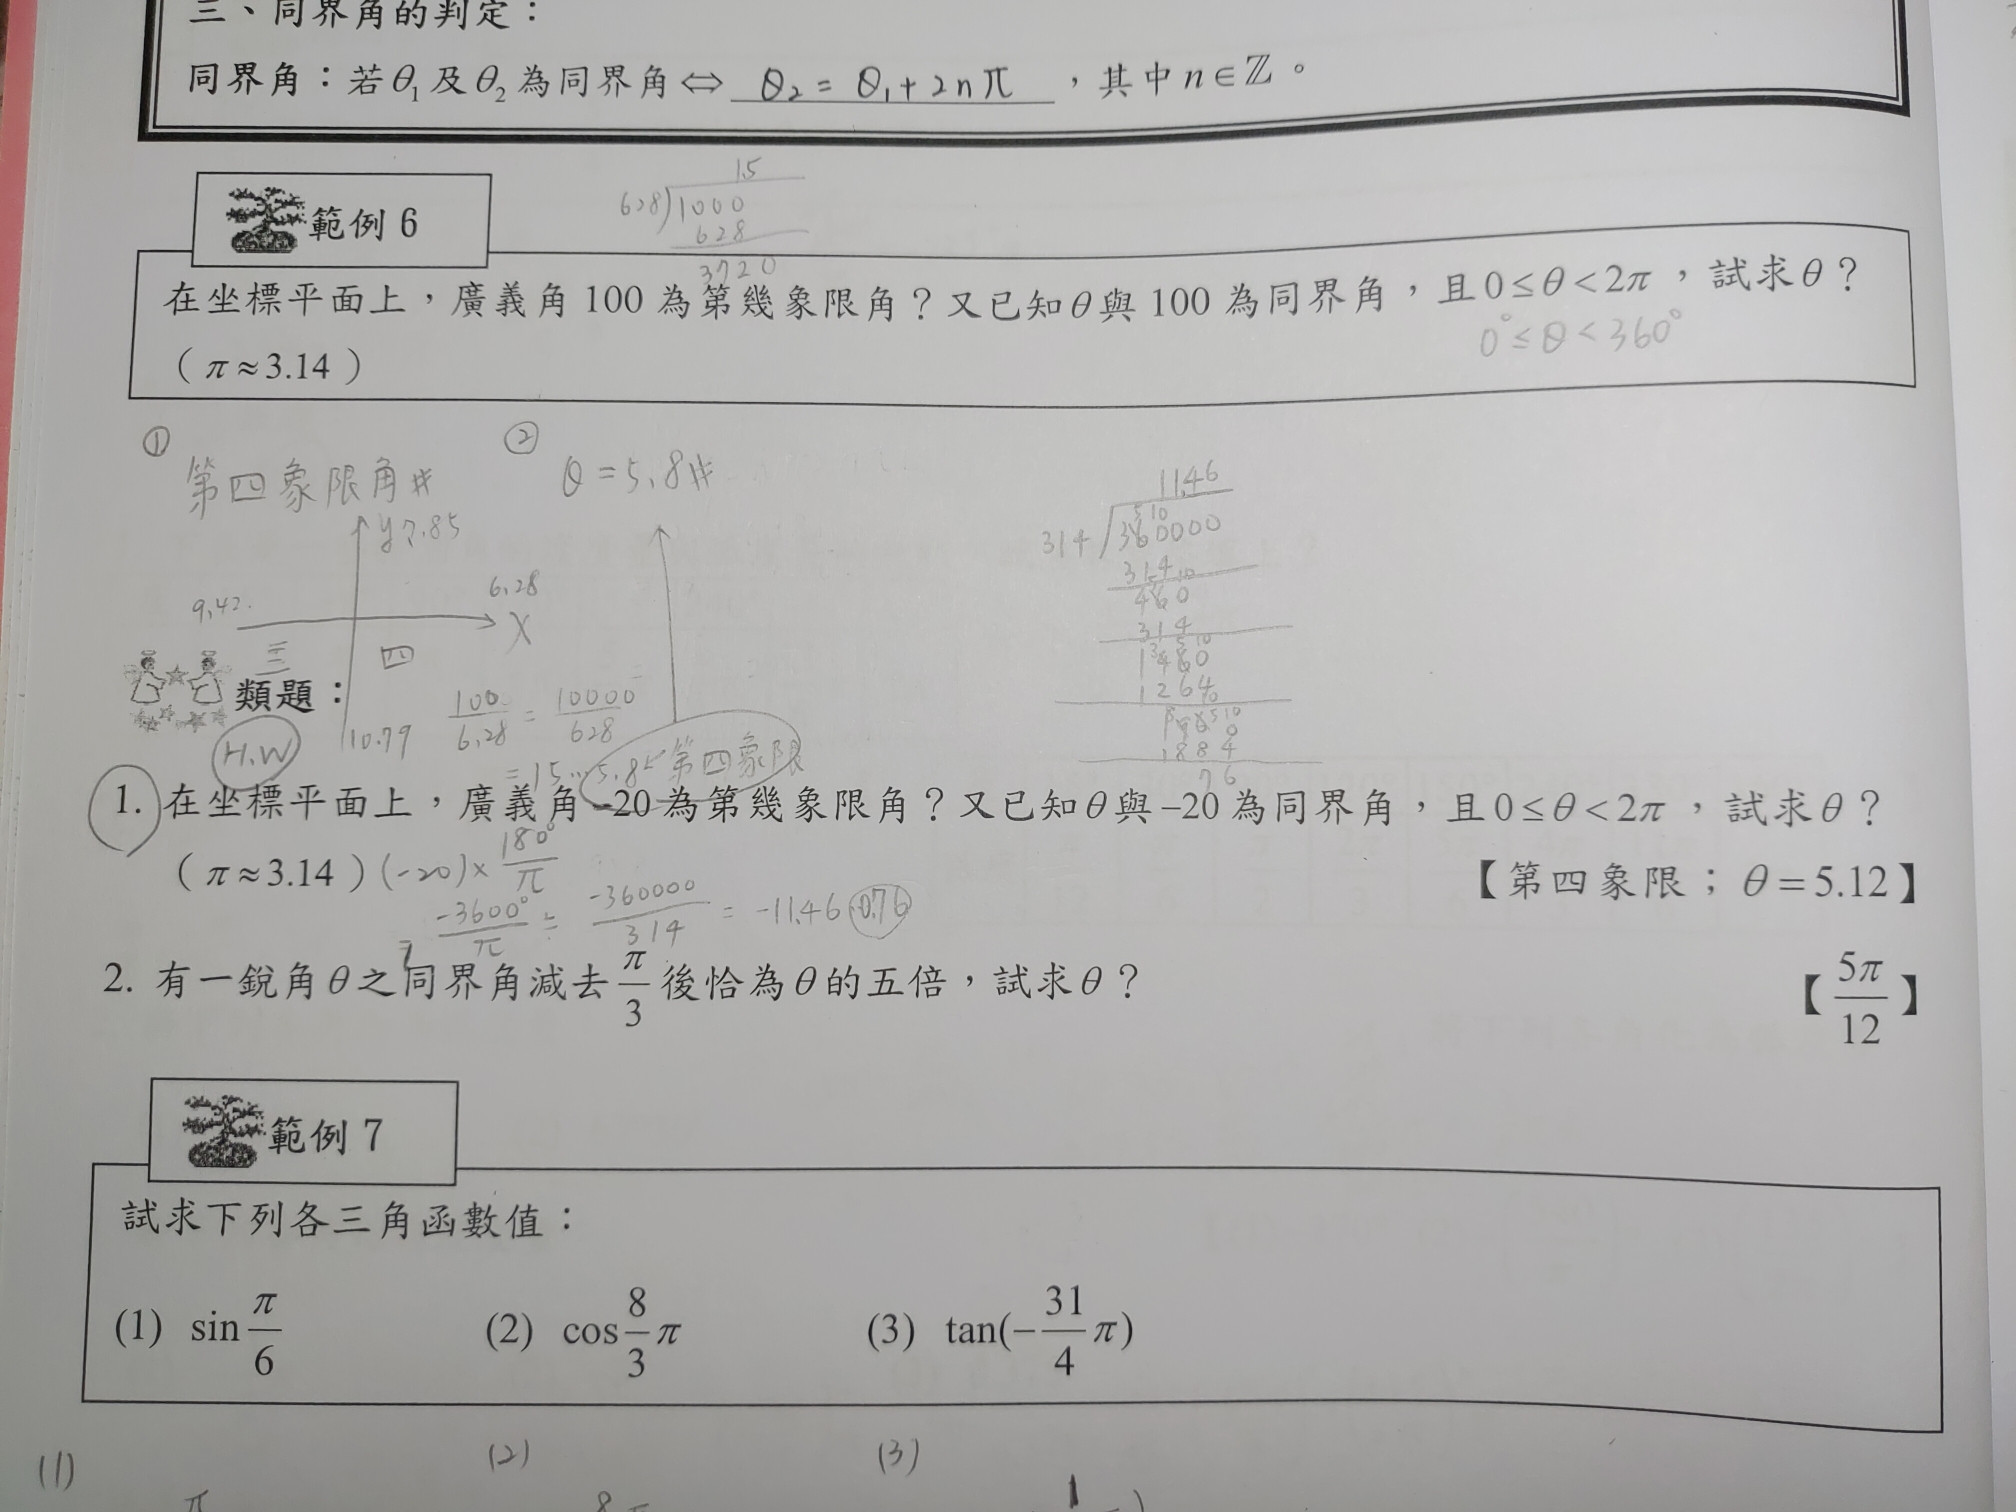 三、同界角的判定：
同界角：若θ₁及θ₂為同界角⇔ θ₂ = θ₁ + 2nπ ，其中n∈ℤ。
1.5
628)1000
628
3720
範例 6
在坐標平面上，廣義角 100 為第幾象限角？又已知θ與 100 為同界角，且0≤θ<2π，試求θ？
0°≤θ<360°
（π≈3.14）
① 第四象限角#
② θ=5.8#
y 7.85
9.42
6.28
X
三
四
10.99
100/6.28 = 10000/628
=15…5.8 第四象限
11.46
314)360000
314
460
314
1460
1264
1884
76
類題：
H.W
1. 在坐標平面上，廣義角 –20 為第幾象限角？又已知θ與–20 為同界角，且0≤θ<2π，試求θ？
（π≈3.14）(-20)×180°/π
【第四象限；θ=5.12】
= -3600°/π ≒ -360000/314 = -11.46 0.76
2. 有一銳角θ之同界角減去π/3後恰為θ的五倍，試求θ？ 【5π/12】
範例 7
試求下列各三角函數值：
(1) sin π/6 (2) cos 8/3 π (3) tan(−31/4 π)
(1) (2) (3)
π 8